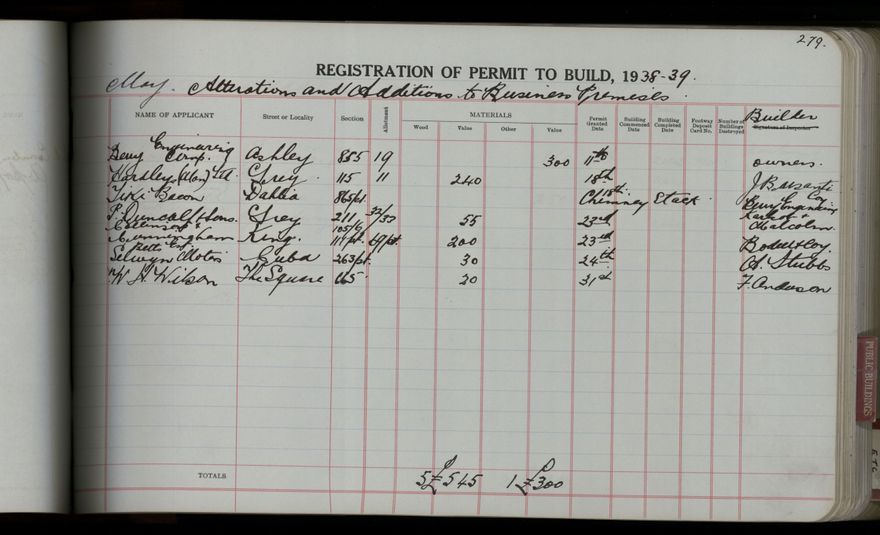 279.
REGISTRATION OF PERMIT TO BUILD, 1938-39.
May. Alterations and Additions to Business Premises.
NAME OF APPLICANT Street or Locality Section Allotment MATERIALS Wood Value Other Value Permit Granted Date Building Commenced Date Building Completed Date Footway Deposit Card No. Number of Buildings Destroyed Builder Signature of Inspector
Engineering
Berry Comp. Ashley 855 19 300 11th owners.
Hardley (Man) Ltd Grey 115 11 240 18th J Bassanti
Tiki Bacon Dahlia 865/pt. 18th Chimney Stack Berry Engineering Coy
P. Duncalf & Sons. Grey 211 32/33 55 23rd & Malcolm.
Collinson &
Cunningham King. 200 23rd Boddy & Coy.
Betts Ltd
Selwyn Motors Cuba 263/pt. 30 24th A. Stubbs
W. H. Wilson The Square 665 20 31st F. Anderson
TOTALS 5 £545 1 £300
PUBLIC BUILDINGS